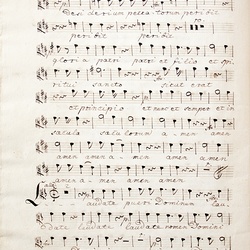 desiderium peccatorum peribit
peribit peribit
gloria patri patri et filio et spi
ritui sancto sicut erat
et principio et nunc et semper et in
sæcula sæculorum amen amen
amen amen amen amen
amen amen amen
Laudate pueri Dominum lau
date laudate laudate nomen Domini